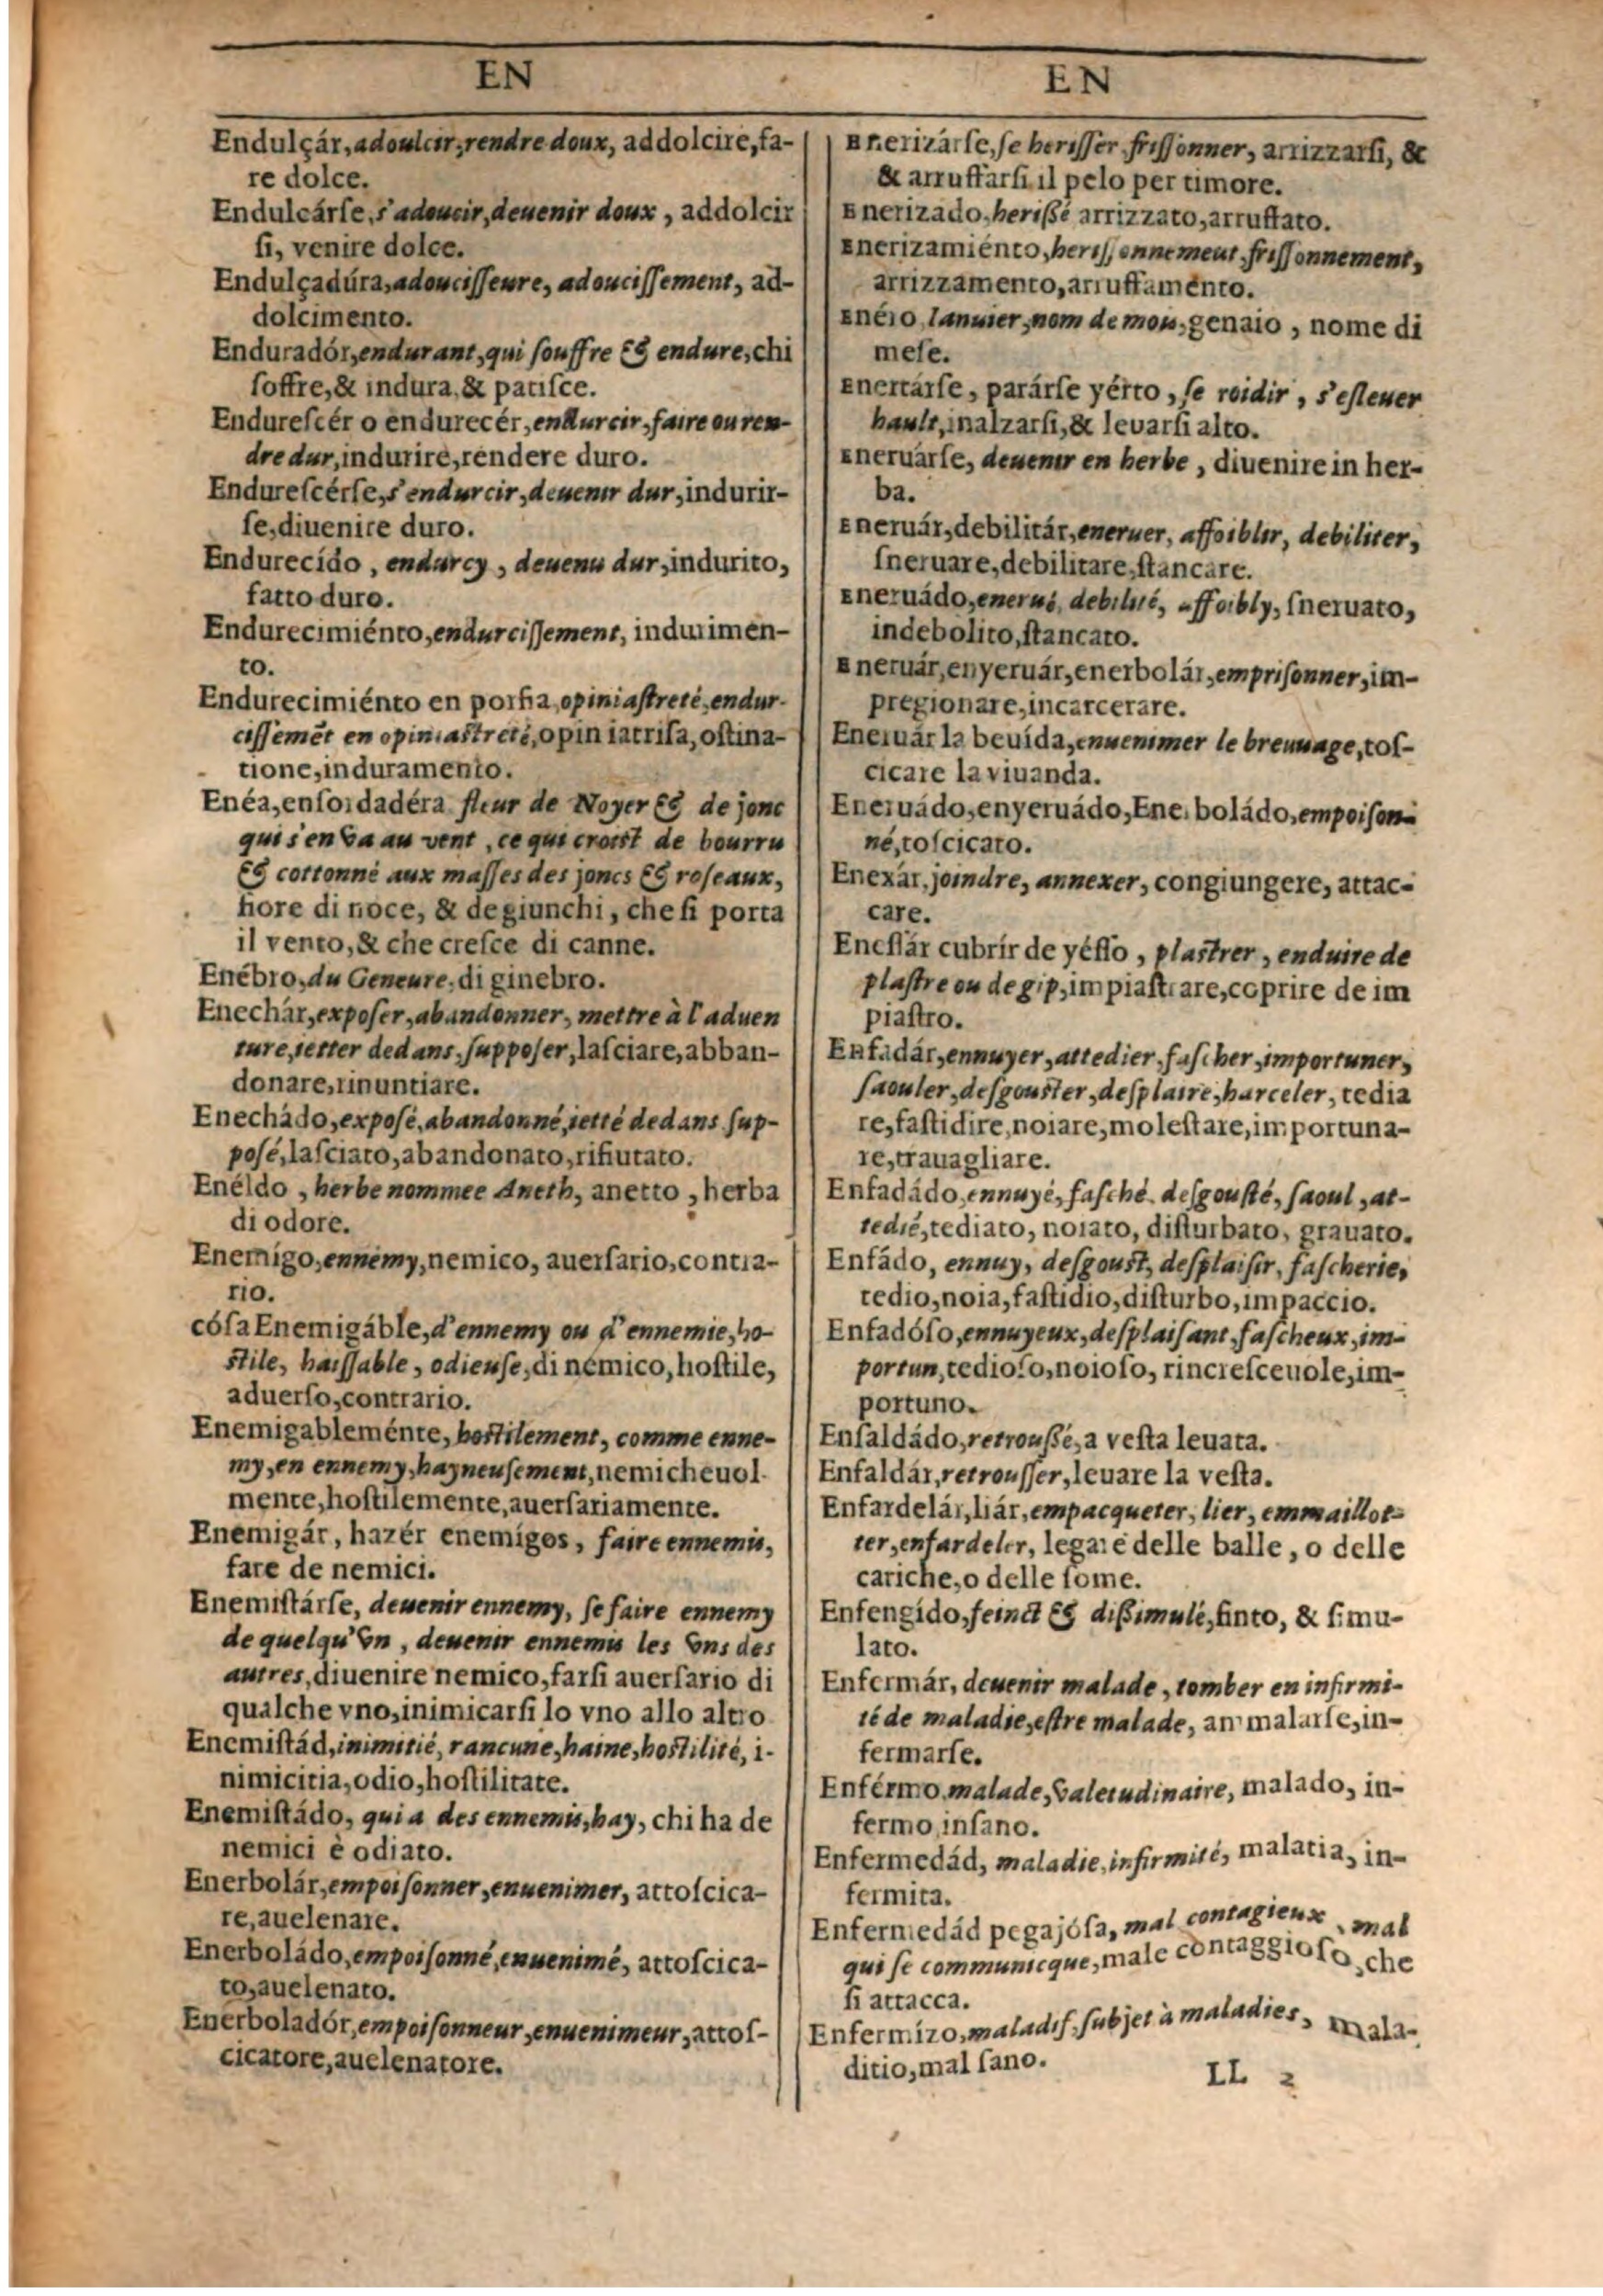 EN
Endulçár, adoulcir, rendre doux, addolcire, fa-
re dolce.
Endulcárſe, s'adoucir, deuenir doux, addolcir
ſi, venire dolce.
Endulçadúra, adouciſſeure, adouciſſement, ad-
dolcimento.
Enduradór, endurant, qui ſouffre & endure, chi
ſoffre, & indura, & patiſce.
Endureſcér o endurecér, endurcir, faire ou ren-
dre dur, indurire, rendere duro.
Endureſcérſe, s'endurcir, deuenir dur, indurir-
ſe, diuenire duro.
Endurecído, endurcy, deuenu dur, indurito,
fatto duro.
Endurecimiénto, endurciſſement, indurimen-
to.
Endurecimiénto en porfia, opiniaſtreté, endur-
ciſſemēt en opiniaſtreté, opiniatriſa, oſtina-
tione, induramento.
Enéa, enſordadéra fleur de Noyer & de jonc
qui s'en va au vent, ce qui croiſt de bourru
& cottonné aux maſſes des joncs & roſeaux,
fiore di noce, & de giunchi, che ſi porta
il vento, & che creſce di canne.
Enébro, du Geneure, di ginebro.
Enechár, expoſer, abandonner, mettre à l'aduen
ture, ietter dedans, ſuppoſer, laſciare, abban-
donare, rinuntiare.
Enechádo, expoſé, abandonné, ietté dedans ſup-
poſé, laſciato, abandonato, rifiutato.
Enéldo, herbe nommee Aneth, anetto, herba
di odore.
Enemígo, ennemy, nemico, auerſario, contra-
rio.
cóſa Enemigáble, d'ennemy ou d'ennemie, ho-
ſtile, haiſſable, odieuſe, di nemico, hoſtile,
aduerſo, contrario.
Enemigableménte, hoſtilement, comme enne-
my, en ennemy, hayneuſement, nemicheuol
mente, hoſtilemente, auerſariamente.
Enemigár, hazér enemígos, faire ennemis,
fare de nemici.
Enemiſtárſe, deuenir ennemy, ſe faire ennemy
de quelqu'vn, deuenir ennemis les vns des
autres, diuenire nemico, farſi auerſario di
qualche vno, inimicarſi lo vno allo altro
Enemiſtád, inimitié, rancune, haine, hoſtilité, i-
nimicitia, odio, hoſtilitate.
Enemiſtádo, qui a des ennemis, hay, chi ha de
nemici è odiato.
Enerbolár, empoiſonner, enuenimer, attoſcica-
re, auelenare.
Enerboládo, empoiſonné, enuenimé, attoſcica-
to, auelenato.
Enerboladór, empoiſonneur, enuenimeur, attoſ-
cicatore, auelenatore.
EN
Enerizárſe, ſe heriſſer friſſonner, arrizzarſi, &
& arruffarſi il pelo per timore.
Enerizado, heriſſé arrizzato, arruffato.
Enerizamiénto, heriſſonnement friſſonnement,
arrizzamento, arruffamento.
Enéro, Ianuier, nom de mois, genaio, nome di
meſe.
Enertárſe, parárſe yérto, ſe roidir, s'eſleuer
hault, inalzarſi, & leuarſi alto.
Eneruárſe, deuenir en herbe, diuenire in her-
ba.
Eneruár, debilitár, eneruer, affoiblir, debiliter,
ſneruare, debilitare, ſtancare.
Eneruádo, enerué, debilité, affoibly, ſneruato,
indebolito, ſtancato.
Eneruár, enyeruár, enerbolár, empriſonner, im-
pregionare, incarcerare.
Eneruár la beuída, enuenimer le breuuage, toſ-
cicare la viuanda.
Eneruádo, enyeruádo, Enerboládo, empoiſon-
né, toſcicato.
Enexár, joindre, annexer, congiungere, attac-
care.
Eneſſár cubrír de yéſſo, plaſtrer, enduire de
plaſtre ou de gip, impiaſtrare, coprire de im
piaſtro.
Enfadár, ennuyer, attedier, faſcher, importuner,
ſaouler, deſgouſter, deſplaire, harceler, tedia
re, faſtidire, noiare, moleſtare, importuna-
re, trauagliare.
Enfadádo, ennuyé, faſché, deſgouſté, ſaoul, at-
tedié, tediato, noiato, diſturbato, grauato.
Enfádo, ennuy, deſgouſt, deſplaiſir, faſcherie,
tedio, noia, faſtidio, diſturbo, impaccio.
Enfadóſo, ennuyeux, deſplaiſant, faſcheux, im-
portun, tedioſo, noioſo, rincreſceuole, im-
portuno.
Enſaldádo, retrouſſé, a veſta leuata.
Enfaldár, retrouſſer, leuare la veſta.
Enfardelár, liár, empacqueter, lier, emmaillot-
ter, enfardeler, legare delle balle, o delle
cariche, o delle ſome.
Enfengído, feinct & diſſimulé, finto, & ſimu-
lato.
Enfermár, deuenir malade, tomber en infirmi-
té de maladie, eſtre malade, ammalarſe, in-
fermarſe.
Enférmo, malade, valetudinaire, malado, in-
fermo, inſano.
Enfermedád, maladie, infirmité, malatia, in-
fermita.
Enfermedád pegajóſa, mal contagieux, mal
qui ſe communicque, male contaggioſo, che
ſi attacca.
Enfermízo, maladif, ſubjet à maladies, mala-
ditio, mal ſano.
LL 2